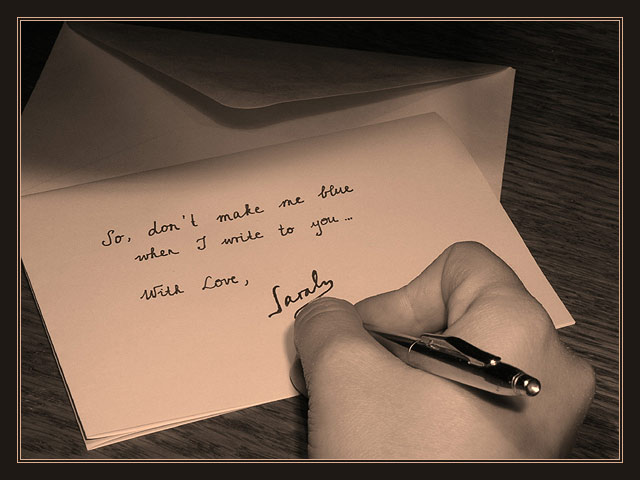 So, don't make me blue
when I write to you...
With Love,
Saraly